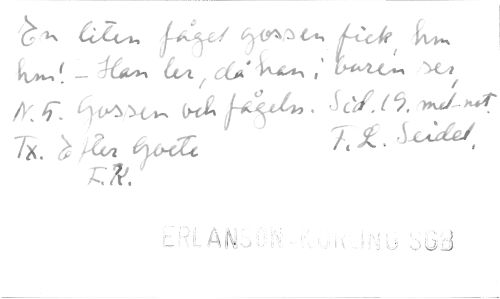 En liten fågel gossen fick, hm
hm! – Han ler, då han i buren ser,
N. 5. Gossen och fågeln. Sid. 19. med not.
Tx. Efter Goete F. L. Seidel.
E.K.
ERLANSON-KORLING SGB